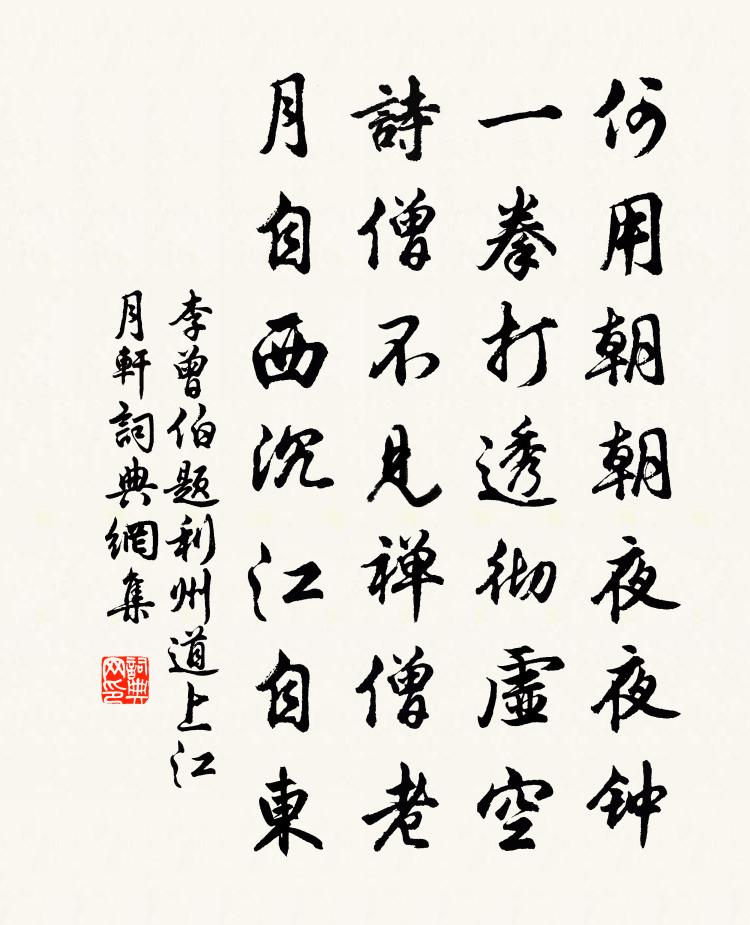 何用朝朝夜夜钟
一拳打透彻虚空
詩僧不見禅僧老
月自西沉江自東
李曾伯题利州道上江
月軒詞典網集
詞典网印